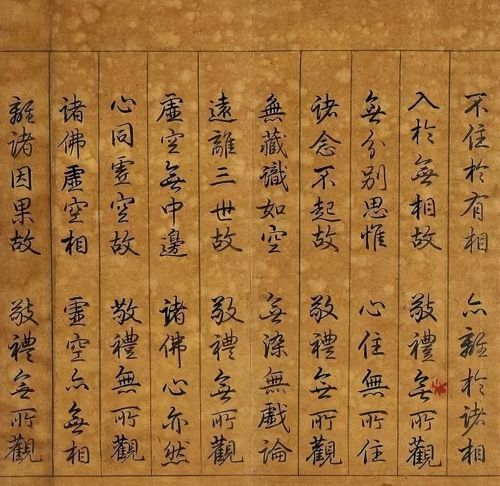 不住於有相 亦離於諸相
入於無相故 敬禮無所觀
無分別思惟 心住無所住
諸念不起故 敬禮無所觀
無藏識如空 無染無戲論
遠離三世故 敬禮無所觀
虛空無中邊 諸佛心亦然
心同虛空故 敬禮無所觀
諸佛虛空相 虛空亦無相
離諸因果故 敬禮無所觀